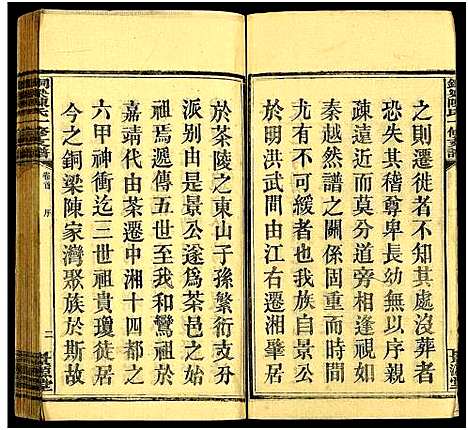 之則遷徙者不知其處沒葬者
恐失其稽尊卑長幼或幾於親
疎遠近而莫分道旁相逢視如
秦越然譜之關係固重而時間
有不可緩者也我始祖景公
於明洪武間由江右遷湘肇居
銅梁陳氏一修支譜
卷首
序
二
於茶陵之東山子孫繁衍支分
派別由是景公遂為茶邑之始
祖焉遞傳五世我和鸞祖於
嘉靖代由茶遷中湘十四都之
六甲神衝迄三世祖貴瓊徒居
今之銅梁陳家灣聚族於斯故